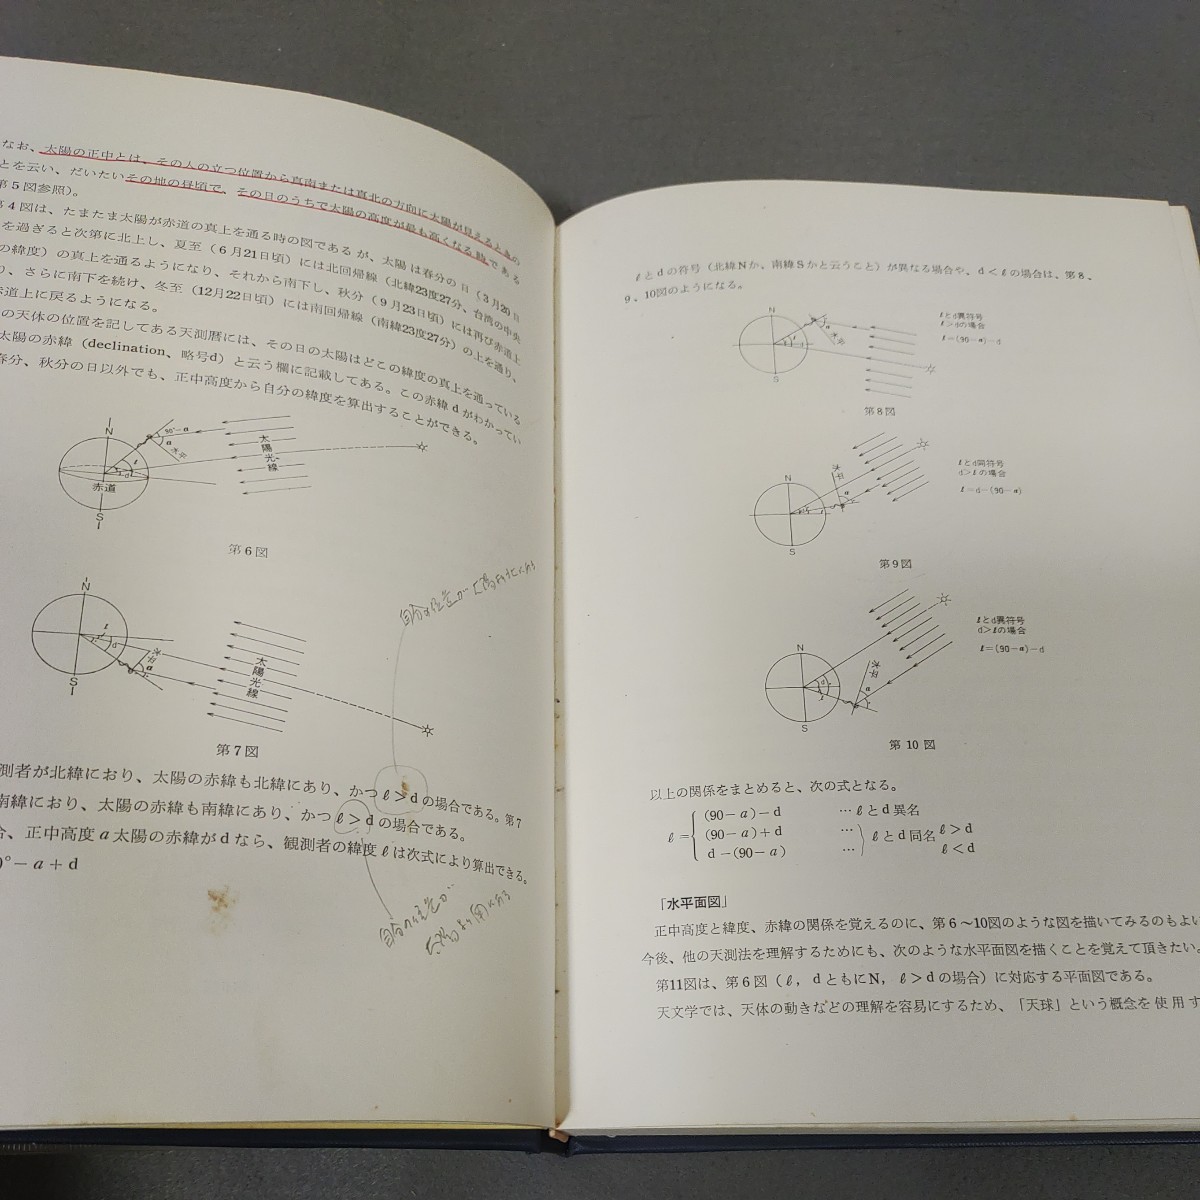 なお、太陽の正中とは、その人の立つ位置から真南または真北の方向に太陽が見えるときの
とを云い、だいたいその地の昼頃で、その日のうちで太陽の高度が最も高くなる時である
第5図参照)。
第4図は、たまたま太陽が赤道の真上を通る時の図であるが、太陽は春分の日(3月20日
を過ぎると次第に北上し、夏至(6月21日頃)には北回帰線(北緯23度27分、台湾の中央
の緯度)の真上を通るようになり、それから南下し、秋分(9月23日頃)には再び赤道上
り、さらに南下を続け、冬至(12月22日頃)には南回帰線(南緯23度27分)の上を通り、
赤道上に戻るようになる。
の天体の位置を記してある天測暦には、その日の太陽はどこの緯度の真上を通っている
太陽の赤緯(declination、略号d)と云う欄に記載してある。この赤緯dがわかってい
春分、秋分の日以外でも、正中高度から自分の緯度を算出することができる。
N
90°-a
a
水平
ℓ
d
赤道
S
太陽光線
第6図
N
ℓ
d
水平
a
S
太陽光線
第7図
測者が北緯におり、太陽の赤緯も北緯にあり、かつℓ>dの場合である。第7
南緯におり、太陽の赤緯も南緯にあり、かつℓ>dの場合である。
合、正中高度a太陽の赤緯がdなら、観測者の緯度ℓは次式により算出できる。
0°-a+d
ℓとdの符号(北緯Nか、南緯Sかと云うこと)が異なる場合や、d<ℓの場合は、第8、
9、10図のようになる。
N
S
a
水平
ℓとd異符号
ℓ>dの場合
ℓ=(90-a)-d
第8図
N
S
水平
a
ℓとd同符号
d>ℓの場合
ℓ=d-(90-a)
第9図
N
S
d
ℓ
水平
a
ℓとd異符号
d>ℓの場合
ℓ=(90-a)-d
第10図
以上の関係をまとめると、次の式となる。
ℓ={(90-a)-d …ℓとd異名
(90-a)+d …}ℓとd同名ℓ>d
d-(90-a) … ℓ<d
「水平面図」
正中高度と緯度、赤緯の関係を覚えるのに、第6~10図のような図を描いてみるのもよい
今後、他の天測法を理解するためにも、次のような水平面図を描くことを覚えて頂きたい。
第11図は、第6図(ℓ,dともにN,ℓ>dの場合)に対応する平面図である。
天文学では、天体の動きなどの理解を容易にするため、「天球」という概念を使用す